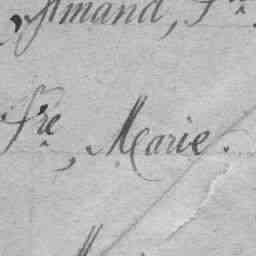 Amand, Fr.
Fre, Marie.